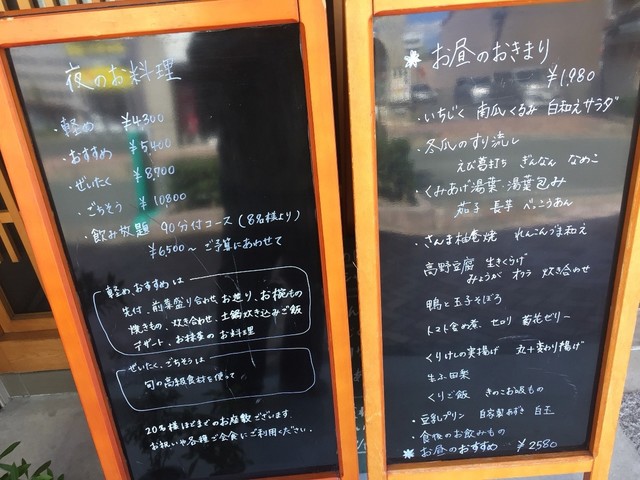 夜のお料理
・軽め ¥4,300
・おすすめ ¥5,400
・ぜいたく ¥8700
・ごちそう ¥10800
・飲み放題 90分付コース(8名様より)
¥6,500〜ご予算にあわせて
軽め、おすすめは
先付、前菜盛り合わせ、お造り、お椀もの
焼きもの、炊き合わせ、土鍋炊き込みご飯
デザート、お抹茶のお料理
ぜいたく、ごちそうは
旬の高級食材を使って
20名様ほどまでのお座敷ございます。
お祝いや各種ご会食にご利用ください。
お昼のおきまり
¥1,980
・いちじく 南瓜くるみ 白和えサラダ
・冬瓜のすり流し
えび葛打ち ぎんなん なめこ
・くみあげ湯葉・湯葉包み
茄子 長芋 べっこうあん
・さんま杣庵焼 れんこんづま和え
高野豆腐 生きくらげ
みょうが オクラ 炊き合わせ
鴨と玉子そぼろ
トマト含め煮、セロリ 菊花ゼリー
くりけしの実揚げ 丸十変わり揚げ
生ふ田楽
くりご飯 きのこお吸もの
・豆乳プリン 自家製あずき 白玉
・食後のお飲みもの
お昼のおすすめ ¥2580